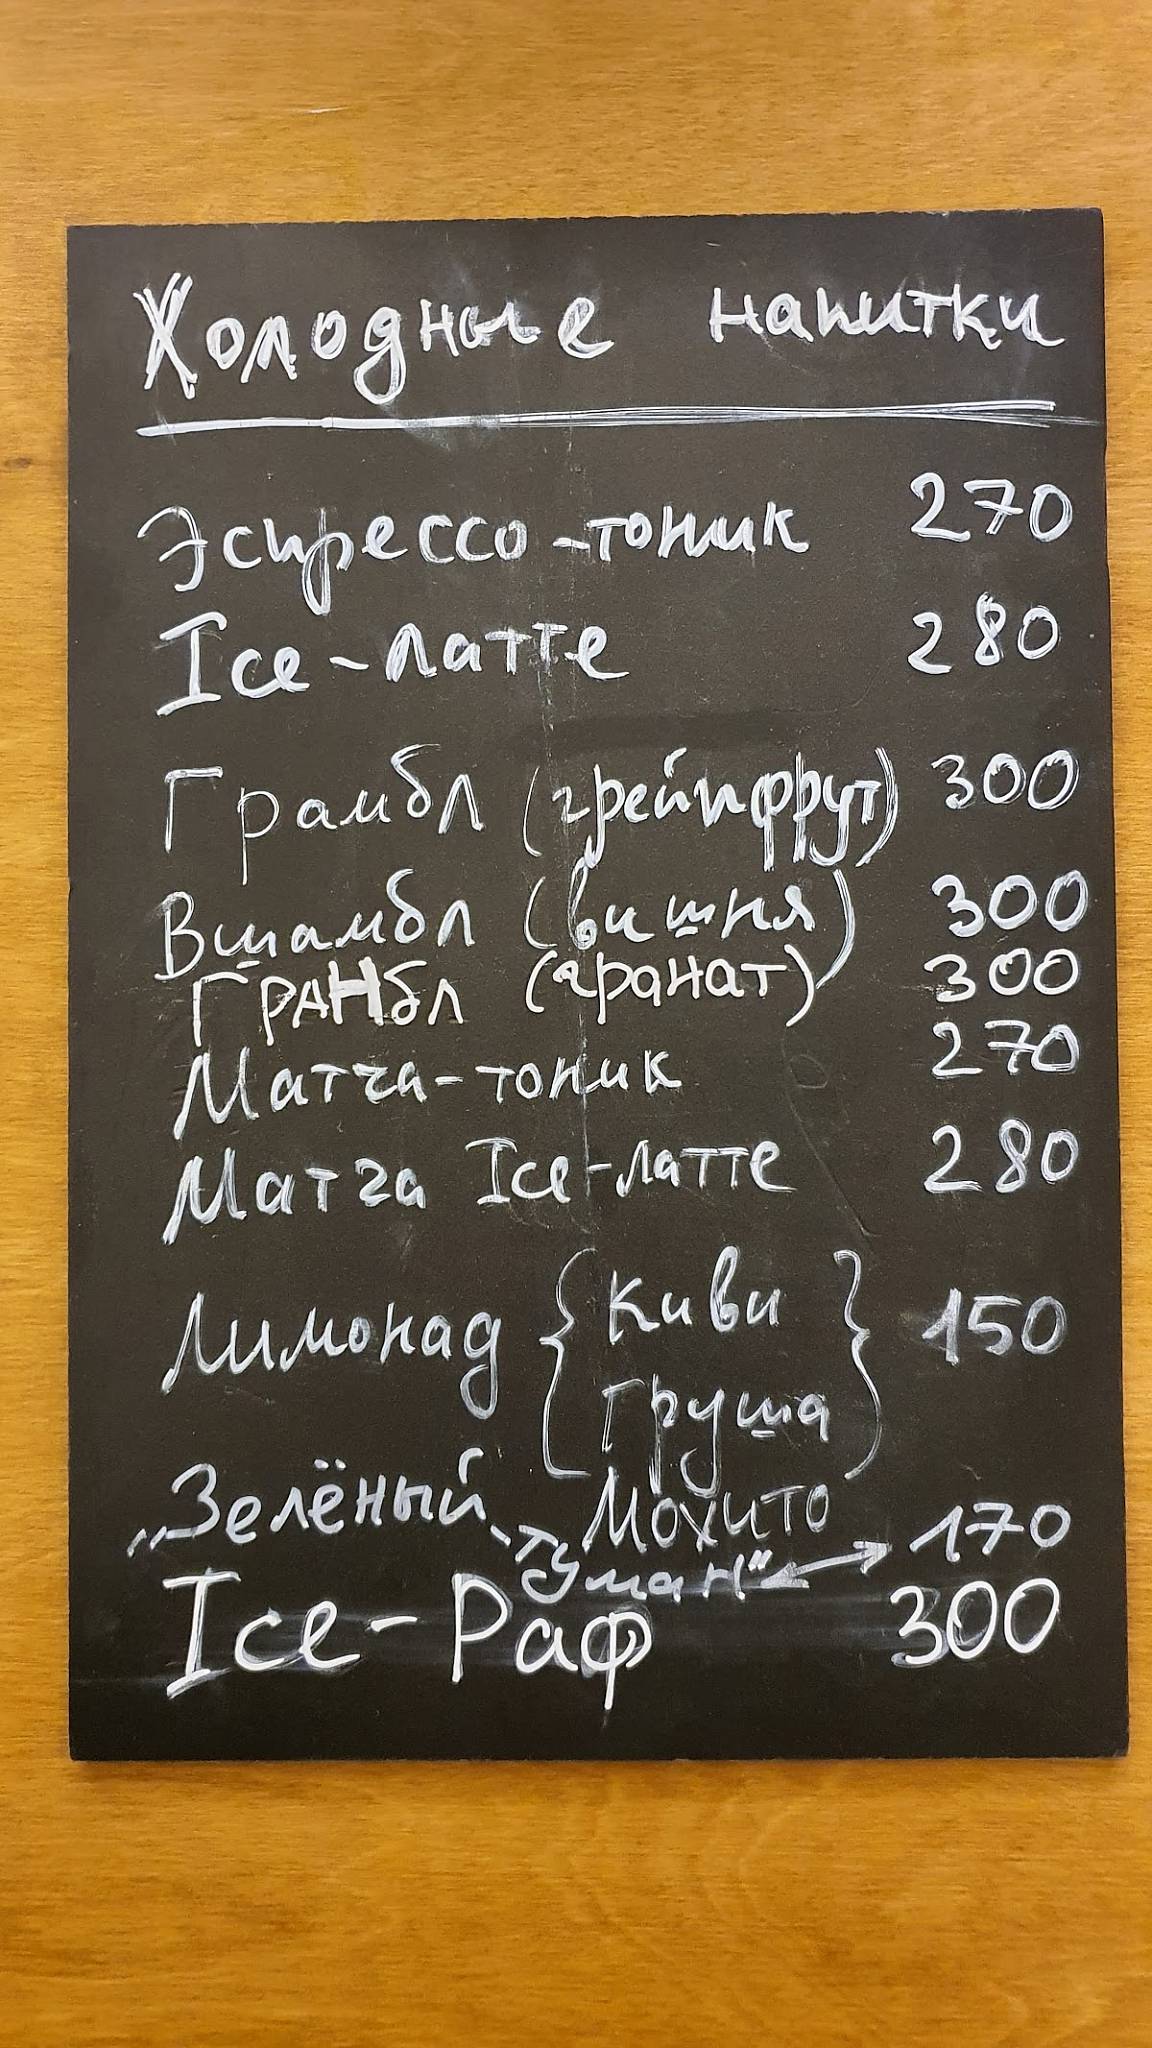 Холодные напитки
Эспрессо-тоник 270
Ice-латте 280
Грамбл (грейпфрут) 300
Вшамбл (вишня) 300
ГРАНбл (гранат) 300
Матча-тоник 270
Матча Ice-латте 280
Лимонад { Киви } 150
Груша
Мохито
„Зелёный туман“ 170
Ice-Раф 300